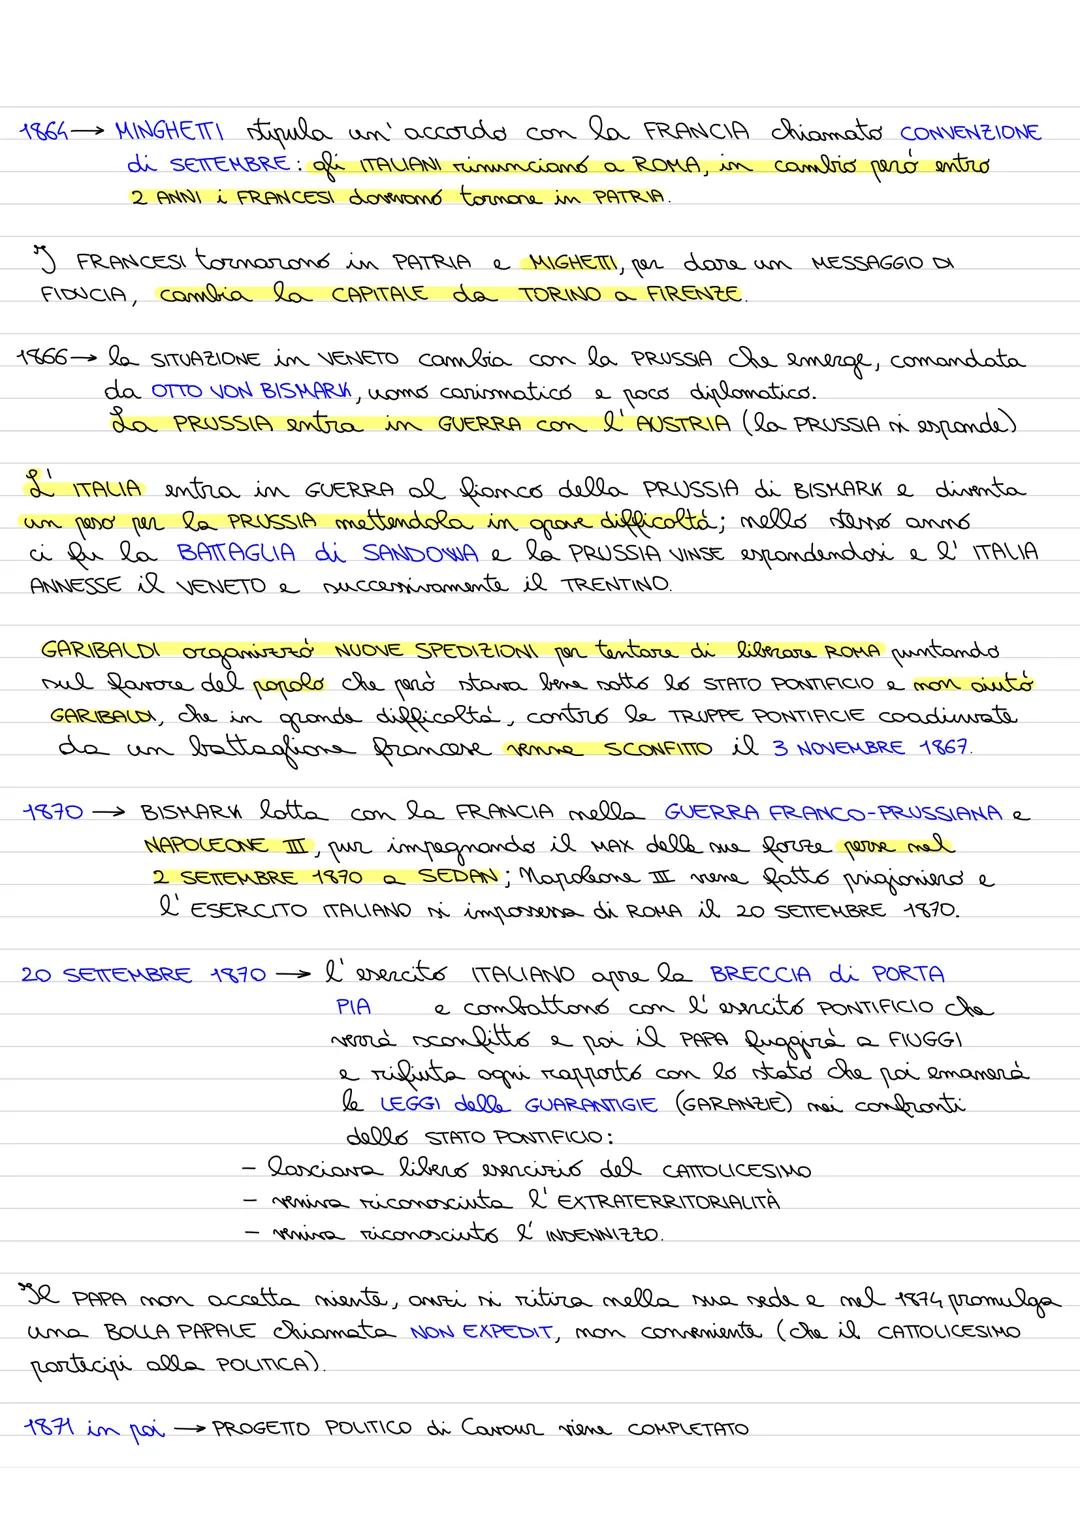 1864 → MINGHETTI stipula un' accordo con la FRANCIA chiamato CONVENZIONE
di SETTEMBRE: gli ITALIANI rinunciano a ROMA, in cambio però entro
2 ANNI i FRANCESI dovranno tornare in PATRIA.
I FRANCESI tornarono in PATRIA e MIGHETTI, per dare un MESSAGGIO DI
FIDUCIA, cambia la CAPITALE da TORINO a FIRENZE.
1866 → la SITUAZIONE in VENETO cambia con la PRUSSIA che emerge, comandata
da OTTO VON BISMARK, uomo carismatico e poco diplomatico.
La PRUSSIA entra in GUERRA con l'AUSTRIA (la PRUSSIA si espande)
L' ITALIA entra in GUERRA al fianco della PRUSSIA di BISMARK e diventa
un peso per la PRUSSIA mettendola in grave difficoltà; nello stesso anno
ci fu la BATTAGLIA di SANDOWA e la PRUSSIA VINSE espandendosi e l' ITALIA
ANNESSE il VENETO e successivamente il TRENTINO.
GARIBALDI organizzò NUOVE SPEDIZIONI per tentare di liberare ROMA puntando
sul favore del popolo che però stava bene sotto lo STATO PONTIFICIO e non aiutò
GARIBALDI, che in grande difficoltà, contro le TRUPPE PONTIFICIE coadiuvate
da un battaglione francese venne SCONFITTO il 3 NOVEMBRE 1867.
1870 → BISMARK lotta con la FRANCIA nella GUERRA FRANCO-PRUSSIANA e
NAPOLEONE III, pur impegnando il MAX delle sue forze perse nel
2 SETTEMBRE 1870 a SEDAN; Napoleone III viene fatto prigioniero e
l' ESERCITO ITALIANO si impossessa di ROMA il 20 SETTEMBRE 1870.
20 SETTEMBRE 1870 → l'esercito ITALIANO apre la BRECCIA di PORTA
PIA e combattono con l'esercito PONTIFICIO che
verrà sconfitto e poi il PAPA fuggirà a FIUGGI
e rifiuta ogni rapporto con lo stato che poi emanerà
le LEGGI delle GUARANTIGIE (GARANZIE) nei confronti
dello STATO PONTIFICIO:
- lasciava libero esercizio del CATTOLICESIMO
- veniva riconosciuta l' EXTRATERRITORIALITÀ
- veniva riconosciuto l' INDENNIZZO.
Il PAPA non accetta niente, anzi si ritira nella sua sede e nel 1874 promulga
una BOLLA PAPALE chiamata NON EXPEDIT, non conveniente (che il CATTOLICESIMO
partecipi alla POLITICA).
1871 in poi → PROGETTO POLITICO di Cavour viene COMPLETATO